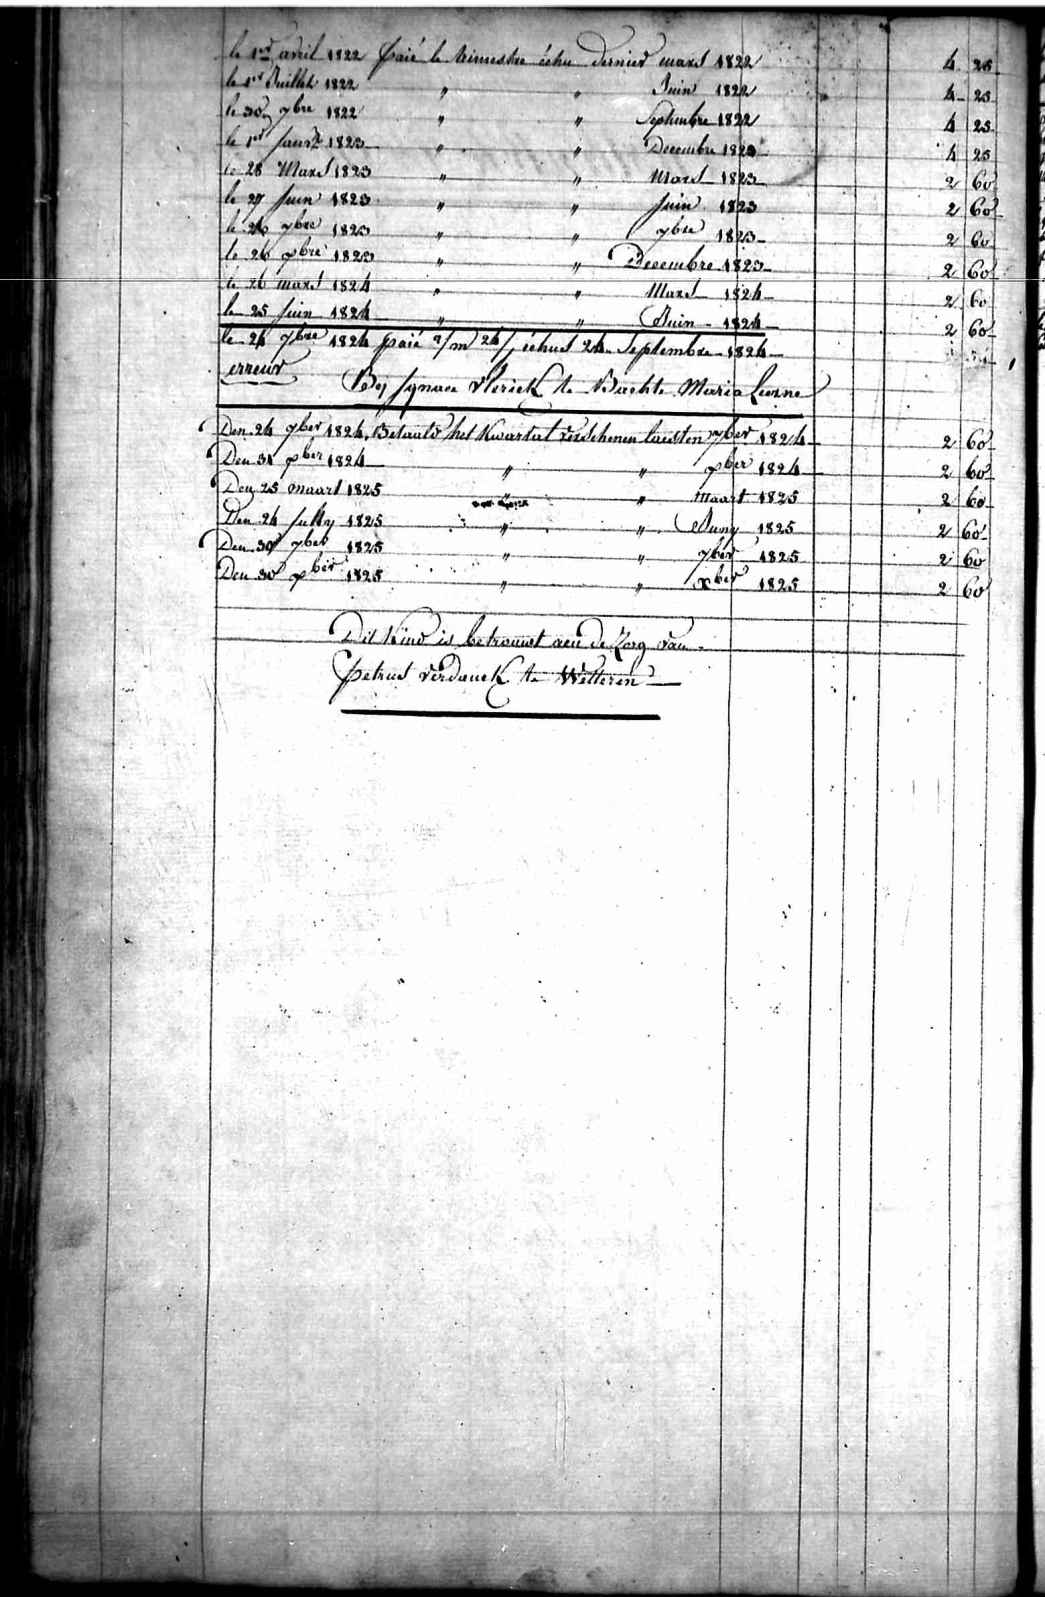 le 1er avril 1822 paié le trimestre échu dernier mars 1822 4 25
le 1er Juillet 1822 " " Juin 1822 4 25
le 30 7bre 1822 " " Septembre 1822 4 25
le 1er Janvr 1823 " " Decembre 1823 4 25
le 28 Mars 1823 " " Mars 1823 2 60
le 27 Juin 1823 " " Juin 1823 2 60
le 26 7bre 1823 " " 7bre 1823 2 60
le 26 xbre 1823 " " Decembre 1823 2 60
le 26 mars 1824 " " Mars 1824 2 60
le 25 Juin 1824 " " Juin 1824 2 60
le 24 7bre 1824 paié échus 24 Septembre 1824
erreur
By Ignace Vlerick te Bachte Maria Leerne
Den 24 7ber 1824 Betaald het Kwartal verschenen laesten 7ber 1824 2 60
Den 31 xber 1824 " " xber 1824 2 60
Den 25 maart 1825 " " Maart 1825 2 60
Den 24 July 1825 " " Juny 1825 2 60
Den 30 7ber 1825 " " 7ber 1825 2 60
Den 30 xber 1825 " " xber 1825 2 60
Dit Kind is betrouwt aen de Zorg van
Petrus Verdonck te Wetteren